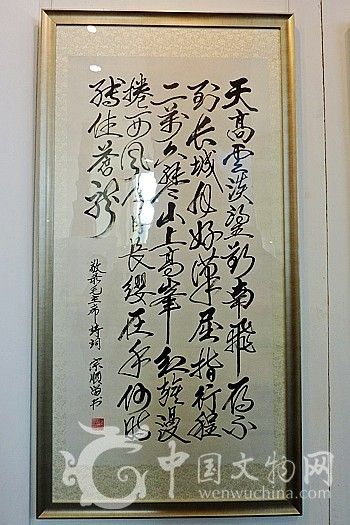 天高雲淡望断南飛雁不
到长城非好漢屈指行程
二萬六盘山上高峯红旗漫
捲西风今日長缨在手何时
缚住蒼龍
敬录毛主席诗词 宗顺 书
中国文物网
wenwuchina.com